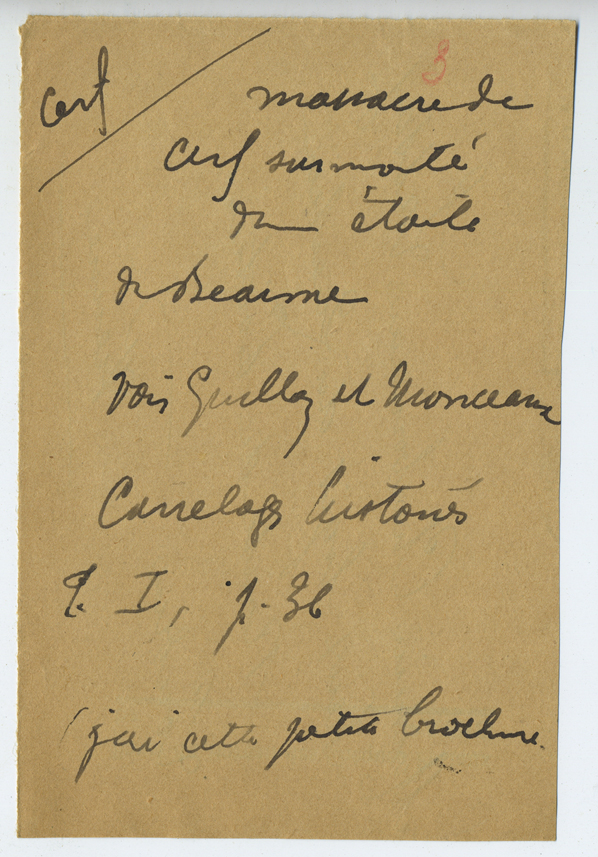 8
cerf
massacre de
cerf surmonté
d'une étoile
de Beaume
Voir Guillon et Monceaux
Carrelages historiés
T. I, p. 36
j'ai cette petite brochure.